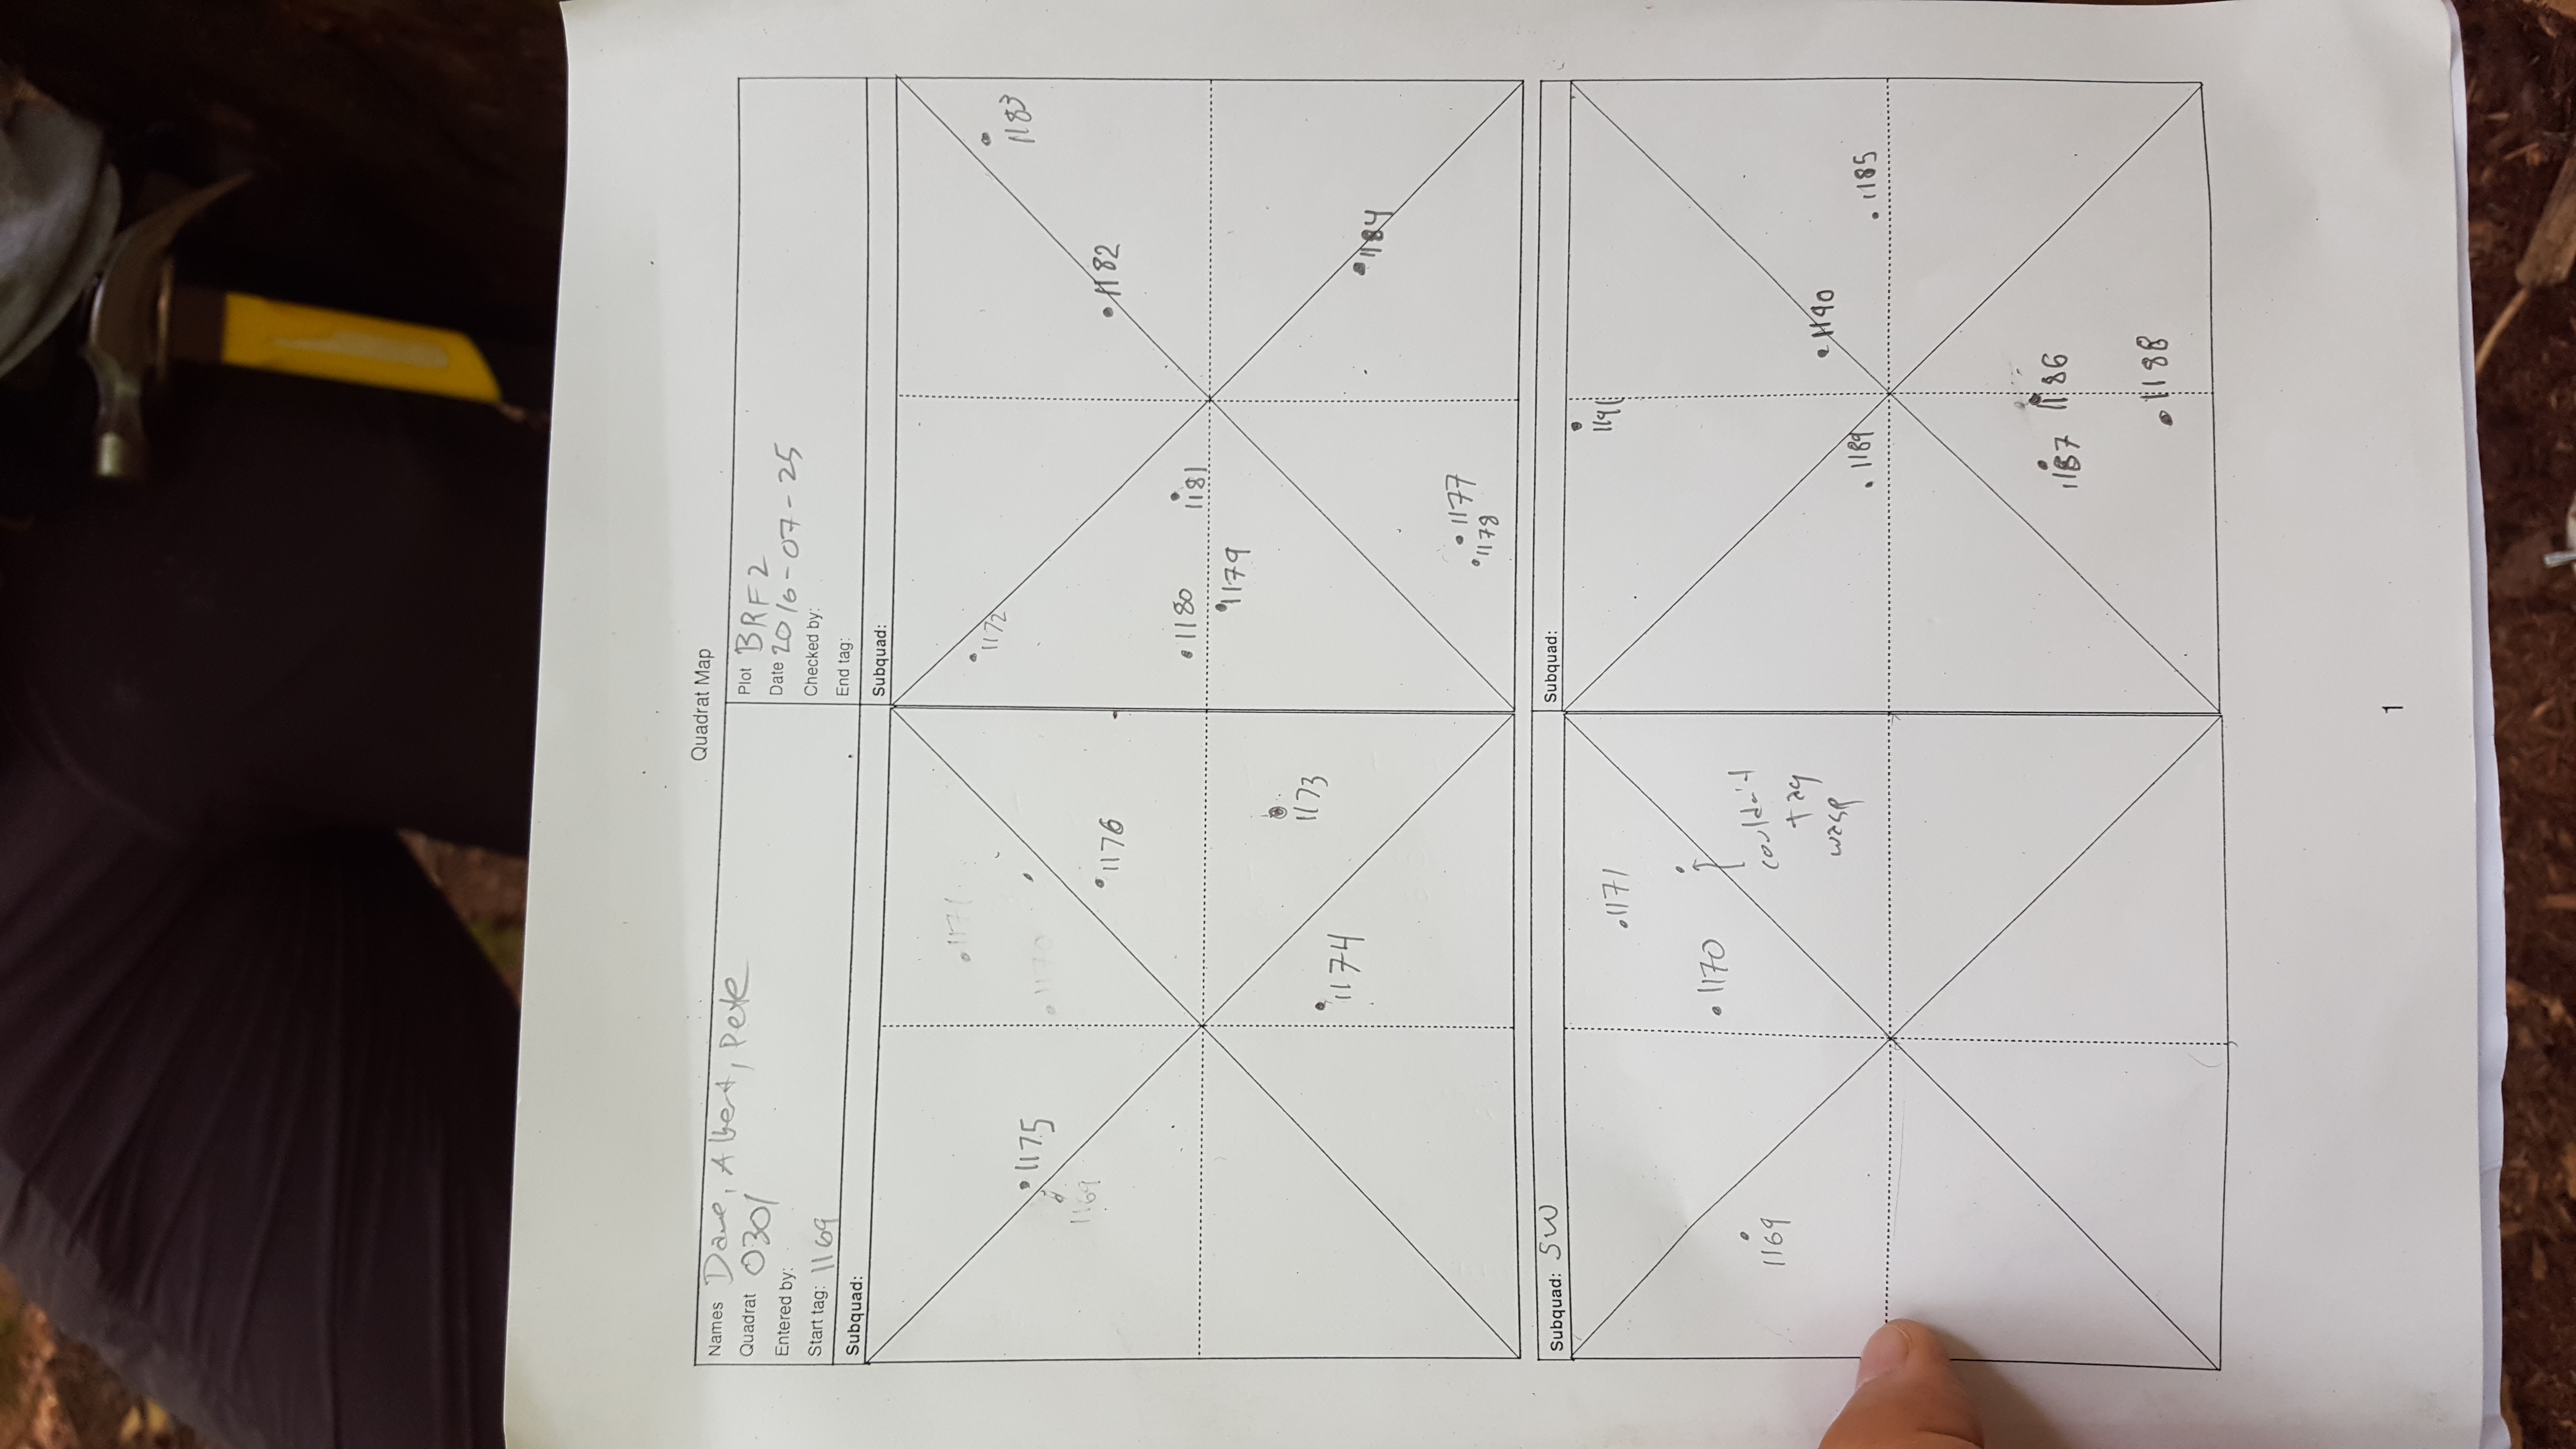 Quadrat Map
Names Dave, Albert, Pete
Quadrat 0301
Entered by:
Start tag: 1169
Plot BRF2
Date 2016-07-25
Checked by:
End tag:
Subquad:
1171
1175
1170
1169
1176
1173
1174
Subquad:
1172
1183
1182
1180
1181
1179
1184
1177
1178
Subquad: SW
1171
1170
1169
couldn't
tag
wasp
Subquad:
1191
1190
1189
1185
1187
1186
1188
1